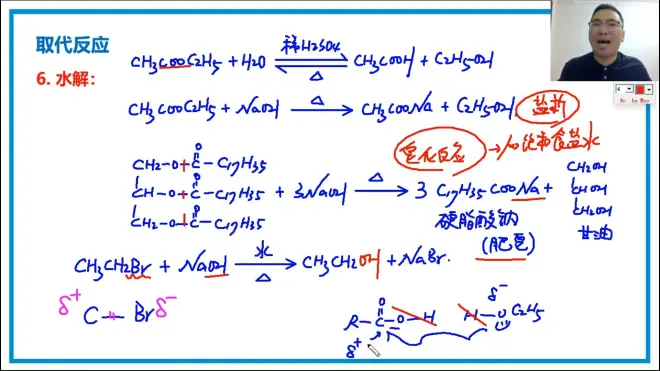 取代反应
6. 水解:
CH3COOC2H5 + H2O 稀H2SO4 △ CH3COOH + C2H5OH
CH3COOC2H5 + NaOH △ CH3COONa + C2H5OH 盐析
皂化反应 → 加饱和食盐水
CH2-O-C-C17H35 O
CH-O-C-C17H35 O + 3NaOH △ 3 C17H35COONa + CH2OH CHOH CH2OH
CH2-O-C-C17H35 O
硬脂酸钠 甘油
(肥皂)
CH3CH2Br + NaOH 水 △ CH3CH2OH + NaBr.
δ+ C — Br δ-
R-C-O-H O H-O C2H5 δ-
δ+